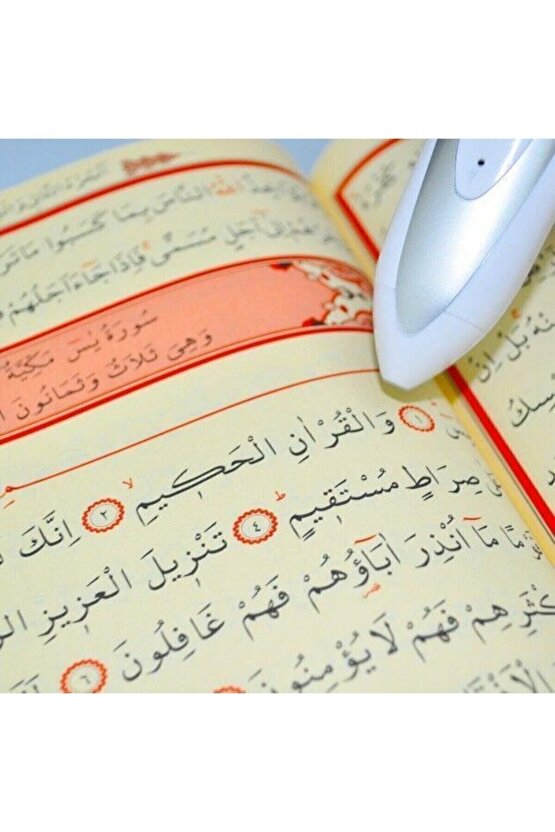 اللّٰهُ النَّاسَ بِمَا كَسَبُوا مَا تَرَ
اِلٰٓى اَجَلٍ مُسَمًّى فَاِذَا جَٓاءَ اَجَلُهُمْ فَ
سُورَةُ يٰسٓ مَكِّيَّةٌ
وَهِيَ ثَلَاثٌ وَثَمَانُونَ
١ وَالْقُرْاٰنِ الْحَكٖيمِ ٢ اِنَّكَ
صِرَاطٍ مُسْتَقٖيمٍ ٤ تَنْزٖيلَ الْعَزٖيزِ الر
مًا مَٓا اُنْذِرَ اٰبَٓاؤُ۬هُمْ فَهُمْ غَافِلُونَ ٦
كْثَرِهِمْ فَهُمْ لَا يُؤْمِنُونَ